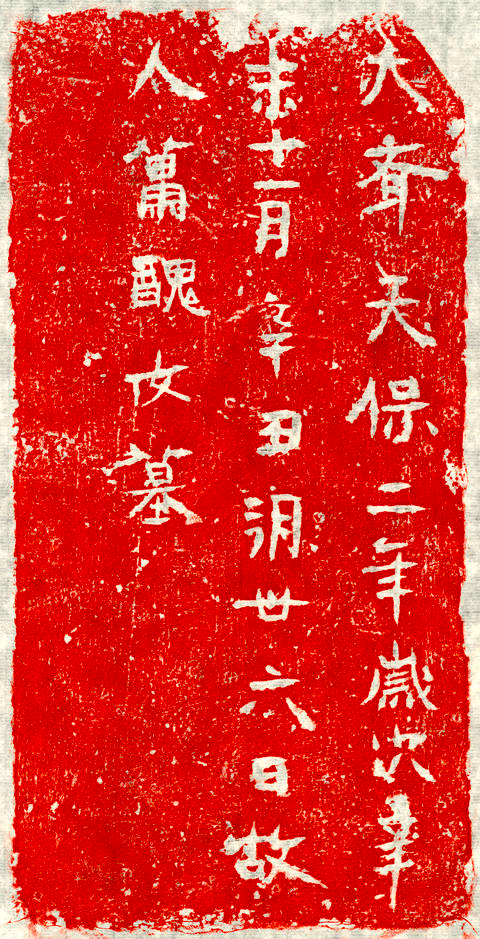 大齊天保二年歲次辛
未十一月辛丑朔廿六日故
人蕭醜女墓